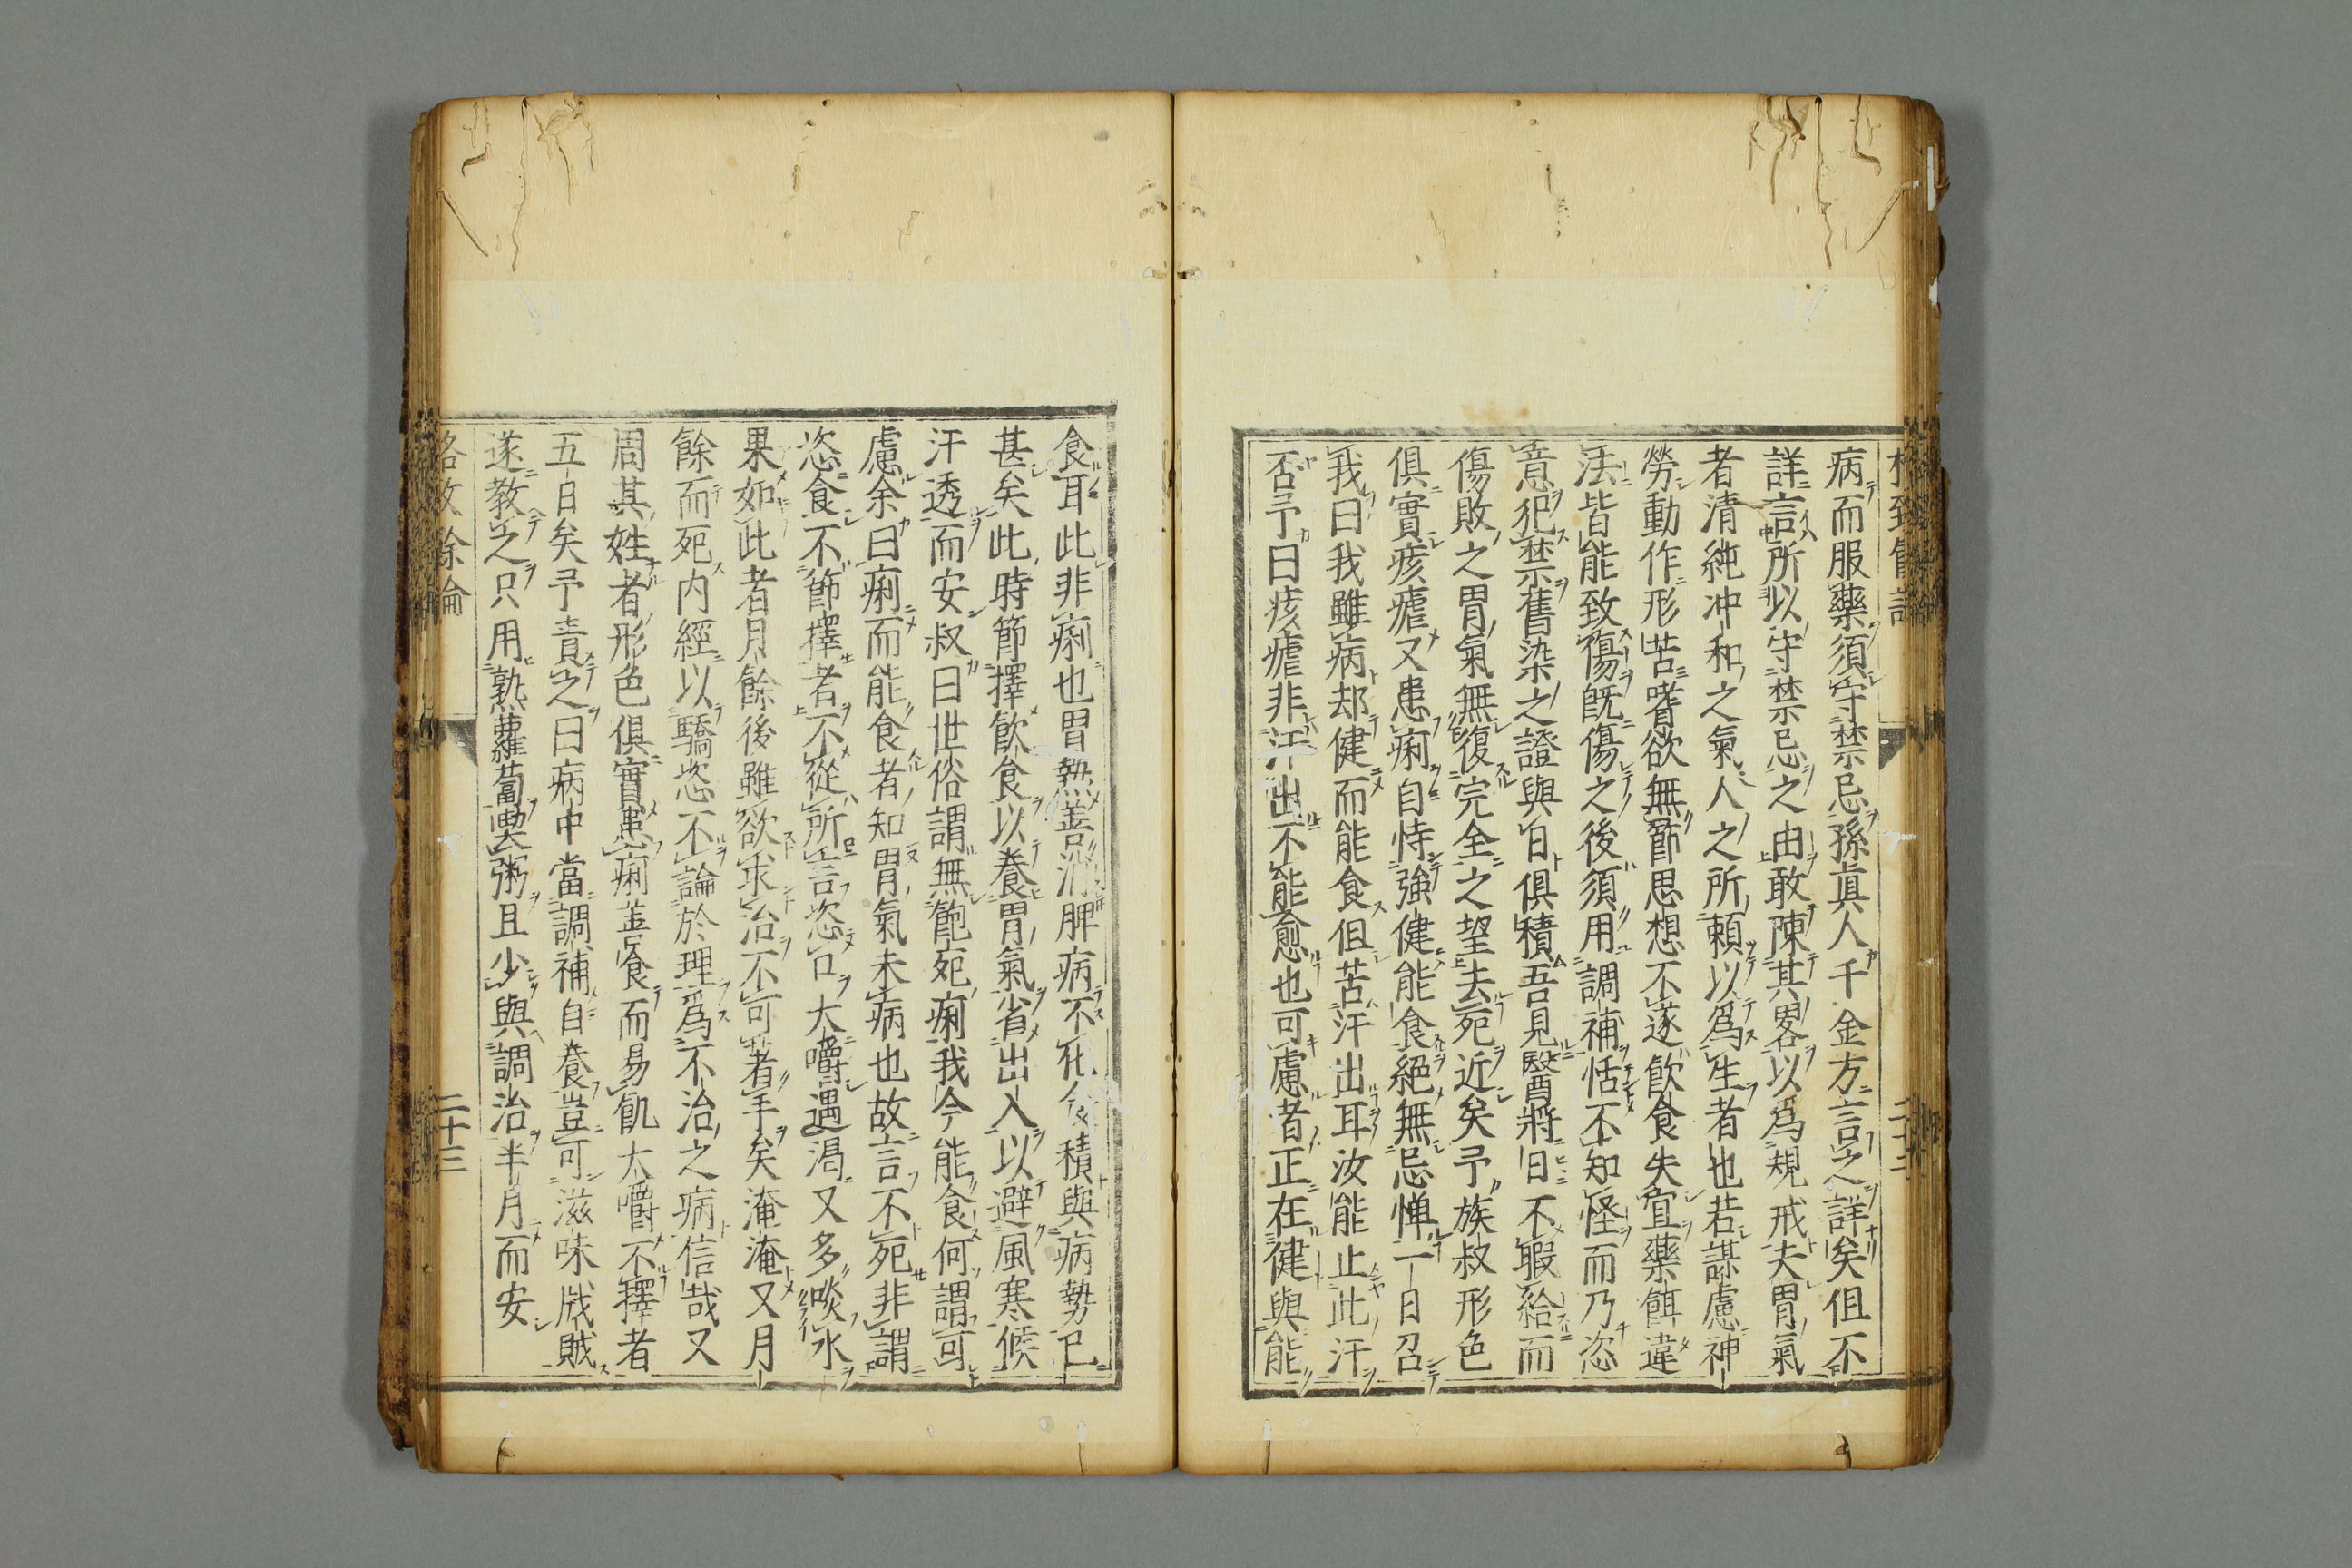 病而服藥須守禁忌孫真人千金方言之詳矣但不
詳言所以守禁忌之由敢陳其畧以爲規戒夫胃氣
者清純冲和之氣人之所頼以爲生者也若謀慮神
勞動作形苦嗜欲無節思想不遂飲食失宜藥餌違
法皆能致傷既傷之後須用調補恬不知怪而乃恣
意犯禁舊染之證與日俱積吾見醫將日不暇給而
傷敗之胃氣無復完全之望去死近矣予族叔形色
俱實痎瘧又患痢自恃強健能食絕無忌憚一日召
我曰我雖病却健而能食但苦汗出耳汝能止此汗
否予曰痎瘧非汗出不能愈也可慮者正在健與能
食耳此非痢也胃熱善消脾病不化食積與病勢已
甚矣此時節擇飲食以養胃氣省出入以避風寒候
汗透而安叔曰世俗謂無飽死痢我今能食何謂可
慮余曰痢而能食者知胃氣未病也故言不死非謂
恣食不節擇者不從所言恣口大嚼遇渴又多啖水
果如此者月餘後雖欲求治不可著手矣淹淹又月
餘而死内經以驕恣不論於理爲不治之病信哉又
周其姓者形色俱實患痢善食而易飢大嚼不擇者
五日矣予責之曰病中當調補自養豈可滋味戕賊
遂教之只用熟蘿蔔喫粥且少與調治半月而安
格致餘論
二十三